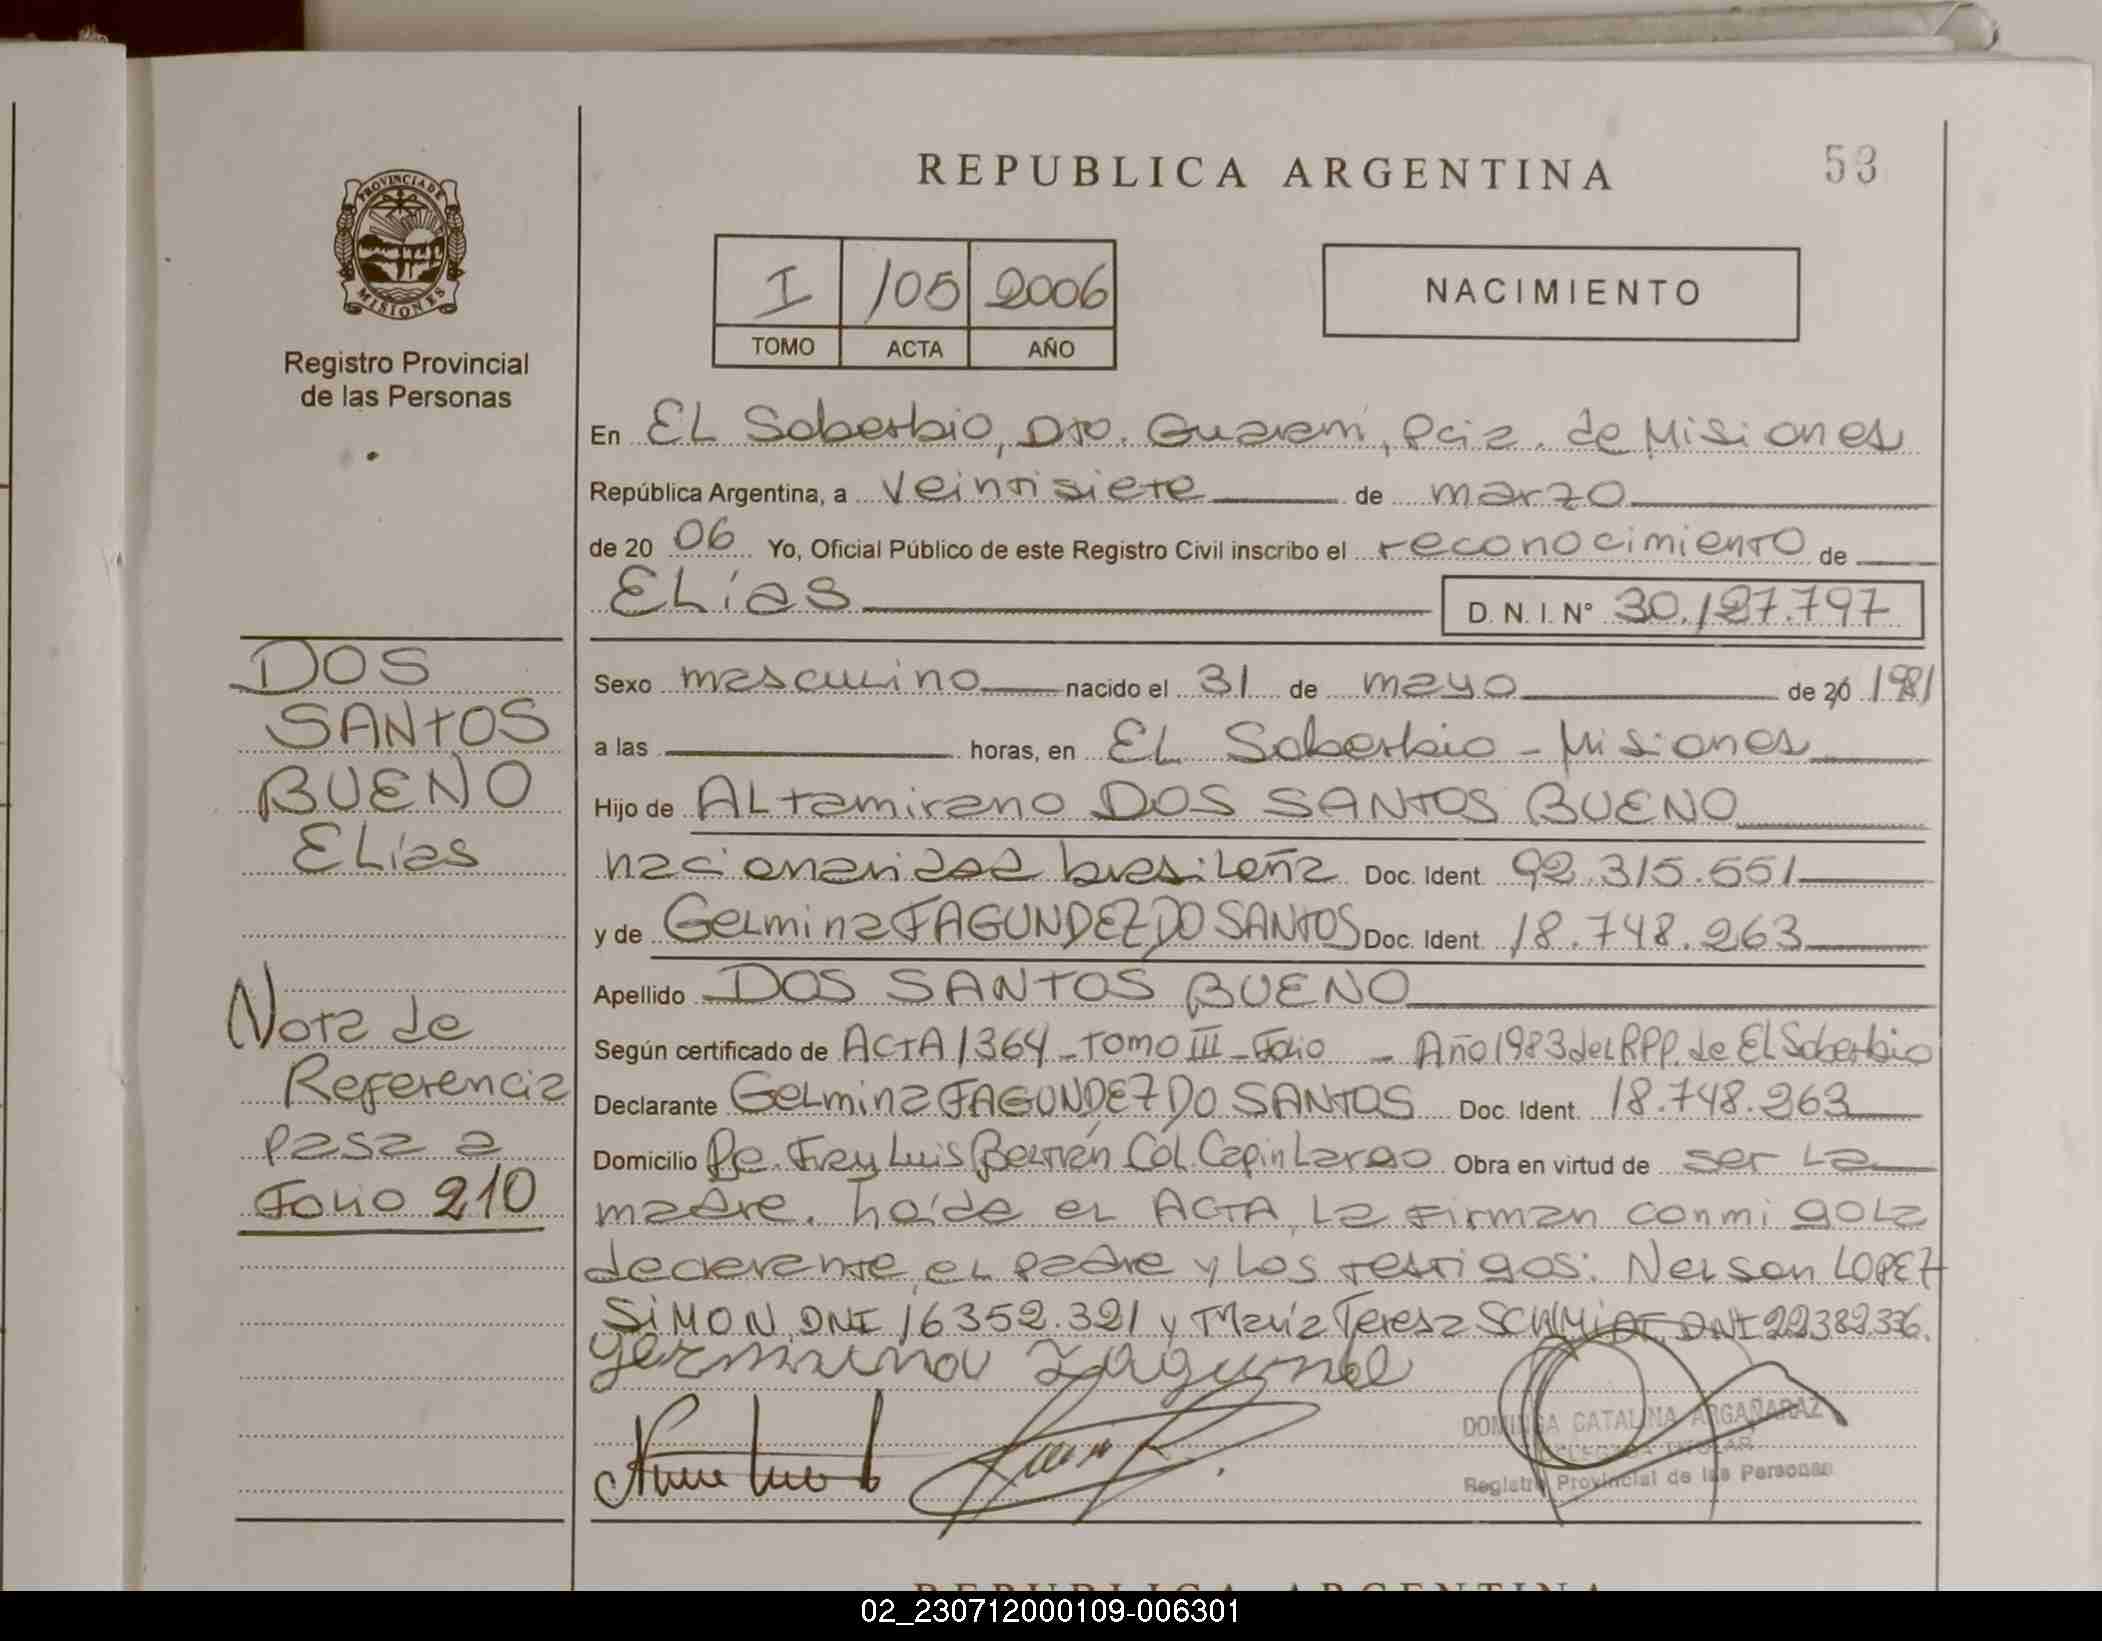 REPUBLICA ARGENTINA
53
PROVINCIA DE
MISIONES
Registro Provincial
de las Personas
I /05 2006
TOMO ACTA AÑO
NACIMIENTO
En EL Soberbio, Dto. Guaraní, Pcia. de Misiones
República Argentina, a veintisiete de marzo
de 2006 Yo, Oficial Público de este Registro Civil inscribo el reconocimiento de
ELías D. N. I. N° 30.127.797
Sexo masculino nacido el 31 de mayo de 20 1981
a las horas, en EL Soberbio - Misiones
Hijo de ALtamirano DOS SANTOS BUENO
nacionalidad brasileña Doc. Ident. 92.315.551
y de GeLmina FAGUNDEZ DO SANTOS Doc. Ident. 18.748.263
Apellido DOS SANTOS BUENO
Según certificado de ACTA 1364 - TOMO III - Folio - Año 1983 del RPP. de El Soberbio
Declarante GeLmina FAGUNDEZ DO SANTOS Doc. Ident. 18.748.263
Domicilio Pje. Fray Luis Beltrán Col. Capin Largo Obra en virtud de ser La
madre. Leída el ACTA, La firman conmigo La
declarante, el padre y Los testigos: Nelson LOPEZ
SiMON, DNI 16352.321 y María Teresa SCHMIDT, DNI 22382.336.
DOS
SANTOS
BUENO
ELías
Nota de
Referencia
pasa a
Folio 210
DOMINGA CATALINA ARGAÑARAZ
DELEGADA TITULAR
Registro Provincial de las Personas
REPUBLICA ARGENTINA
02_230712000109-006301